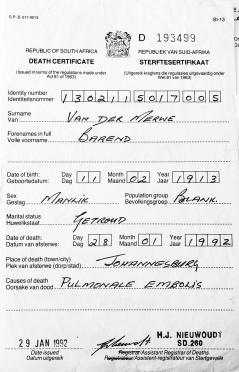 G.P.-S. 017-0013
BI-13
D 193499
REPUBLIC OF SOUTH AFRICA REPUBLIEK VAN SUID-AFRIKA
DEATH CERTIFICATE STERFTESERTIFIKAAT
(Issued in terms of the regulations made under (Uitgereik kragtens die regulasies uitgevaardig onder
Act 81 of 1963) Wet 81 van 1963)
Identity number
Identiteitsnommer 1302115017005
Surname
Van VAN DER MERWE
Forenames in full
Volle voorname BAREND
Date of birth: Day Month Year
Geboortedatum: Dag 11 Maand 02 Jaar 1913
Sex Population group
Geslag MANLIK Bevolkingsgroep BLANK
Marital status
Huwelikstaat GETROUD
Date of death: Day Month Year
Datum van afsterwe: Dag 28 Maand 01 Jaar 1992
Place of death (town/city)
Plek van afsterwe (dorp/stad) JOHANNESBURG
Causes of death
Oorsake van dood PULMONALE EMBOLIS
29 JAN 1992 H.J. NIEUWOUDT
SD.260
Date issued Registrar/Assistant Registrar of Deaths
Datum uitgereik Registrateur/Assistent-registrateur van Sterfgevalle